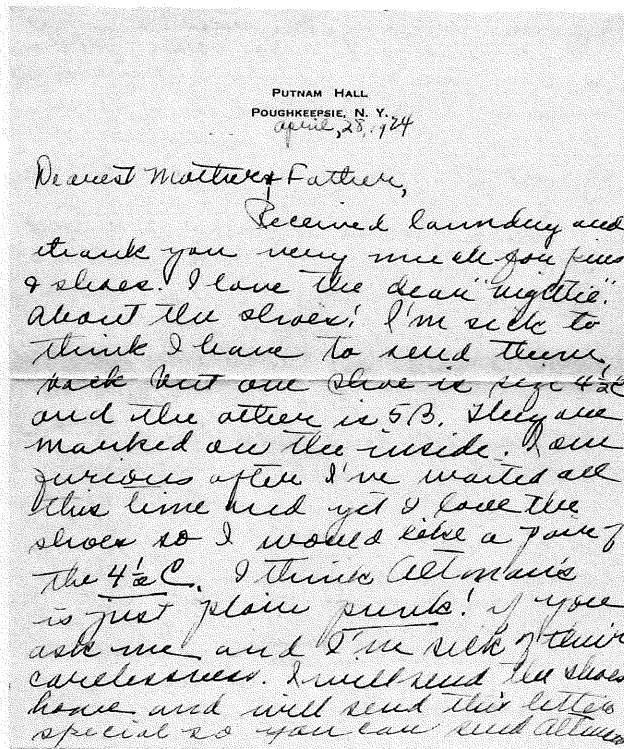 PUTNAM HALL
POUGHKEEPSIE, N. Y.
April, 28, 1924
Dearest Mother & Father,
Received laundry and
thank you very much for pins
& shoes. I love the dear "nightie".
About the shoes! I'm sick to
think I have to send them
back but one shoe is size 4½ C
and the other is 5B. They are
marked on the inside. I am
furious after I've waited all
this time and yet I love the
shoes so I would like a pair of
the 4½ C. I think Altman's
is just plain punk! if you
ask me and I'm sick of their
carelessness. I will send the shoes
home and will send this letter
special so you can send Altman